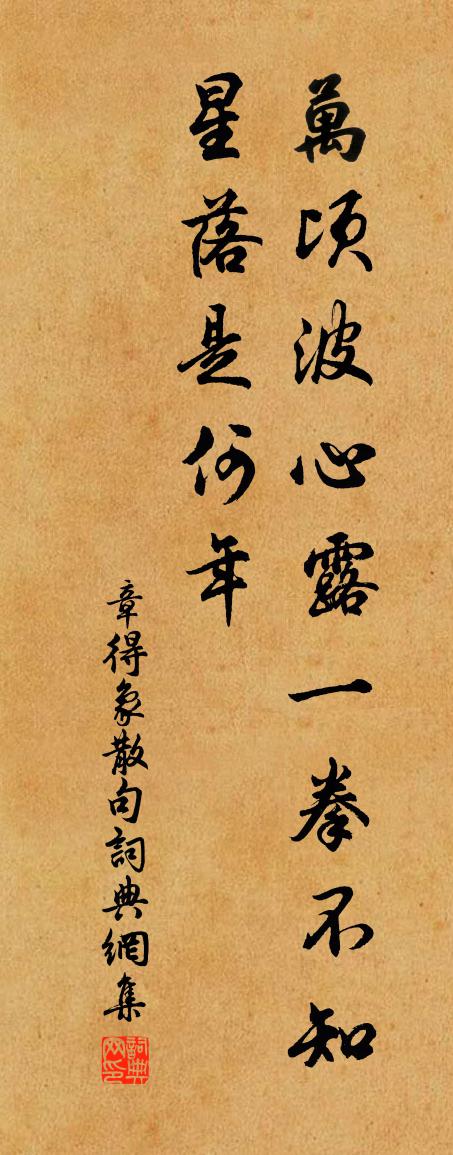 萬頃波心露一拳不知
星落是何年
章得象散句詞典網集
詞典
网印